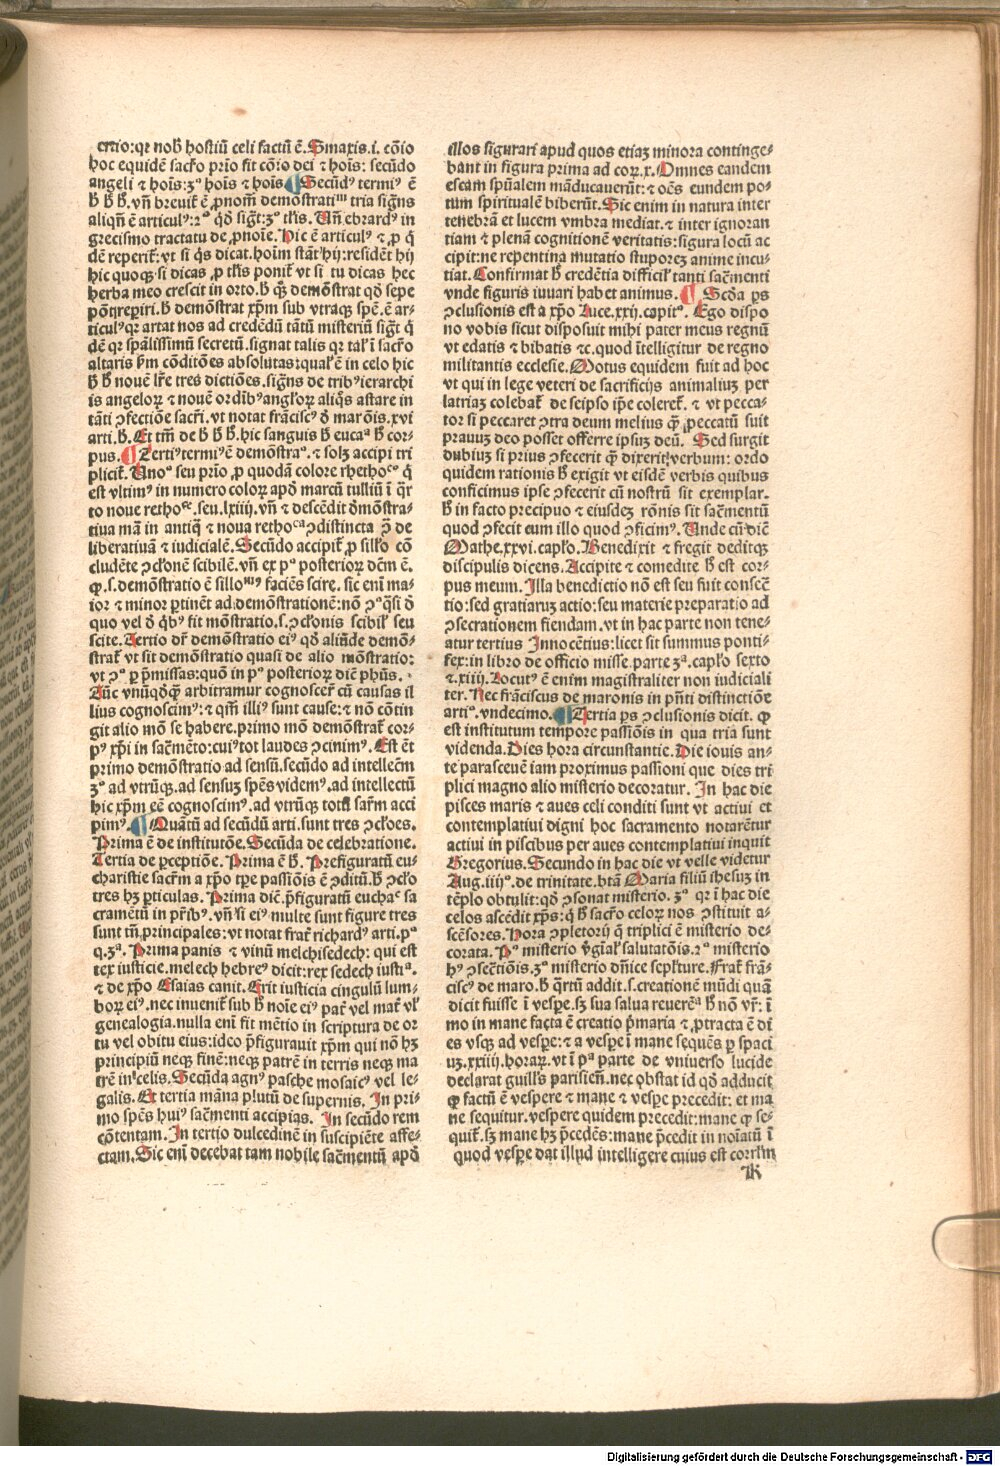 ertio:qꝛ nob̄ hostiū celi factū ē. Sinaxis.i. cōio
hoc equidē sacr̄o pr̄io fit cō:o dei ⁊ hoīs: secūdo
angeli ⁊ hoīs:3ᵒ hoīs ⁊ hoīs ¶ Secūdꝰ termīꝰ ē
h̄ h̄ h̄. vn̄ breuit̄ ē ꝓnom̄ demonstratiᵐ tria sign̄s
aliqn̄ ē articulꝰ:2ᵒ qd̄ sigt̄:3ᵒ tl̄is. Un̄ ebrardꝰ in
grecismo tractatu de ꝓnoīe. Hic ē articulꝰ ⁊ ꝓ q̄
dē reperit̄: vt si q̄s dicat. hoīm stāt hij: residēt hij
hic quoqꝫ si dicas ꝓ tl̄is ponit̄ vt si tu dicas hec
herba meo crescit in orto. h̄ qꝫ demōstrat qd̄ sepe
pōt reperiri. h̄ demōstrat xp̄m sub vtraqꝫ spē. ē ar-
ticulꝰ qꝛ artat nos ad credēdū tātū misteriū sigt̄ q̄
dē qꝛ sp̄alissimū secretū. signat talis qꝛ tal̄ i sacr̄o
altaris p̄m cōditōes absolutas: qual̄ ē in celo hic
h̄ h̄ nouē lr̄e tres dictiōes. sign̄s de tribꝰ ierarchi
is angeloꝝ ⁊ nouē ordībꝰ angloꝝ aliq̄s astare in
tāti ꝓfectiōe sacr̄i. vt notat frāciscꝰ d̄ marōis. xvi
arti. h̄. Et tm̄ de h̄ h̄ h̄. hic sanguis h̄ eucaᵃ h̄ cor-
pus. ¶ Tertiꝰ termiꝰ ē demōstraᵒ. ⁊ solꝫ accipi tri
plicit̄. Unoᵒ seu prīo ꝓ quodā colore rhethoᶜᵒ q̄
est vltimꝰ in numero coloꝝ apd̄ marcū tulliū i q̄r
to noue rethoᶜᵉ. seu. lxiiij. vn̄ ⁊ descēdit d̄mōstra-
tiua mā in antiq̄ ⁊ noua rethoᶜᵃ ↄdistincta ꝓ de
liberatiuā ⁊ iudicialē. Secūdo accipit̄ ꝓ sillo cō
cludēte ↄcl̄onē scibilē. vn̄ ex pᵒ posterioꝝ dēm ē.
ꝙ. s. demōstratio ē silloᵐᵘˢ faciēs scire. sic eni ma-
ior ⁊ minor ꝑtinēt ad demōstrationē: nō ↄᵒ q̄si d̄
quo vel d̄ q̄bꝰ fit mōstratio. s. ↄcl̄onis scibil̄ seu
scite. Tertio dr̄ demōstratio eiꝰ qd̄ alīnde demō-
strat̄ vt sit demōstratio quasi de alio mōstratio:
vt ↄᵒ ꝑ p̄missas: quō in pᵒ posterioꝝ diē phūs.
Tūc vnūqd̄qꝫ arbitramur cognoscer̄ cū causas il
lius cognoscimꝰ: ⁊ qm̄ illi sunt cause: ⁊ nō cōtin
git alio mō se habere. primo mō demōstrat̄ cor-
pꝰ xp̄i in sacr̄mēto: cuiꝰ tot laudes ↄcinimꝰ. Est ēt
primo demōstratio ad sensū. secūdo ad intellectm̄
3ᵒ ad vtrūqꝫ. ad sensuꝫ spēs videmꝰ. ad intellectū
hic xp̄m eē cognoscimꝰ. ad vtrūqꝫ totū sacr̄m acci
pimꝰ. ¶ Quātū ad secūdū arti. sunt tres ↄcl̄oes.
Prima ē de institutōe. Secūda de celebratione.
Tertia de ꝑceptiōe. Prima ē h̄. Prefiguratū eu-
charistie sacr̄m a xp̄o tꝑe passiōis ē ↄditū. h̄ ↄcl̄o
tres hꝫ ꝑticulas. Prima diē. p̄figuratū euchaᵉ sa
cramētū in pr̄ibꝰ. vn̄ si eiꝰ multe sunt figure tres
sunt tn̄ principales: vt notat frat̄ richardꝰ arti. pᵒ
q. 3ᵃ. Prima panis ⁊ vinū melchisedech: qui est
rex iusticie. melech hebreꝰ dicit: rex sedech iustiᵃ.
⁊ de xp̄o Esaias canit. Erit iusticia cingulū lum-
boꝝ eiꝰ. nec inuenit̄ sub h̄ noīe eiꝰ pat̄ vel mat̄ vl̄
genealogia. nulla eni fit mētio in scriptura de or
tu vel obitu eius: ideo p̄figurauit xp̄m qui nō hꝫ
principiū neqꝫ finē: neqꝫ patrē in terris neqꝫ ma
trē in celis. Secūda agnꝰ pasche mosaicꝰ vel le-
galis. Et tertia māna plutū de supernis. In pri-
mo spēs huiꝰ sacr̄menti accipias. In secūdo rem
cōtentam. In tertio dulcedinē in suscipiēte affe-
ctam. Sic eni decebat tam nobile sacr̄mentū apd̄
illos figurari apud quos etiaꝫ minora continge-
bant in figura prima ad coꝝ. x. Omnes eandem
escam spūalem māducauerūt: ⁊ oēs eundem po-
tum spiritualē biberūt. Sic enim in natura inter
tenebrā et lucem vmbra mediat. ⁊ inter ignoran
tiam ⁊ plenā cognitionē veritatis: figura locū ac
cipit: ne repentina mutatio stuporeꝫ anime incu-
tiat. Confirmat h̄ credētia difficil̄ tanti sacr̄menti
vnde figuris iuuari habet animus. ¶ Scd̄a ps
ↄclusionis est a xp̄o Luce. xxij. capitᵒ. Ego dispo
no vobis sicut disposuit mihi pater meus regnū
vt edatis ⁊ bibatis ⁊c. quod itelligitur de regno
militantis ecclesie. Motus equidem fuit ad hoc
vt qui in lege veteri de sacrificijs animaliuꝫ per
latriaꝫ colebat̄ de seipso ip̄e coleret̄. ⁊ vt pecca-
tor si peccaret ↄtra deum melius qꝫ peccatū fuit
prauuꝫ deo posset offerre ipsuꝫ deū. Sed surgit
dubiuꝫ si prius ↄfecerit qꝫ dixerit verbum: ordo
quidem rationis h̄ exigit vt eisdē verbis quibus
conficimus ipse ↄfecerit cū nostrū sit exemplar.
h̄ in facto precipuo ⁊ eiusdeꝫ rōnis sit sacr̄mentū
quod ↄfecit eum illo quod ↄficimꝰ. Unde cū diē
Mathe. xxvi. capl̄o. Benedixit ⁊ fregit deditqꝫ
discipulis dicens. Accipite ⁊ comedite h̄ est cor-
pus meum. Illa benedictio nō est seu fuit consec̄
tio: sed gratiaruꝫ actio: seu materie preparatio ad
ↄsecrationem fiendam. vt in hac parte non tene-
atur tertius Innocētius: licet sit summus ponti-
fex: in libro de officio misse. parte 3ᵃ. capl̄o sexto
⁊. xiiij. Locutꝰ ē enim magistraliter non iudiciali
ter. Nec frāciscus de maronis in pn̄ti distinctiōe
artiᵒ. vndecimo. ¶ Tertia ps ↄclusionis dicit. ꝙ
est institutum tempore passiōis in qua tria sunt
videnda. Dies hora circunstantie. Die iouis an-
te parasceuē iam proximus passioni que dies tri
plici magno alio misterio decoratur. In hac die
pisces maris ⁊ aues celi conditi sunt vt actiui et
contemplatiui digni hoc sacramento notarētur
actiui in piscibus per aues contemplatiui inquit
Gregorius. Secundo in hac die vt velle videtur
Aug. iiijᵒ. de trinitate. btā Maria filiū ihesuꝫ in
tēplo obtulit: qd̄ ↄsonat misterio. 3ᵒ qꝛ i hac die
celos ascēdit xp̄s: q̄ h̄ sacr̄o celoꝝ nos ↄstituit a-
scēsores. Hora ↄpletorij q̄ triplici ē misterio de-
corata. Pᵒ misterio v̄gīal̄ salutatōis. 2ᵒ misterio
hꝰ ↄsec̄tiōis. 3ᵒ misterio dn̄ice sepl̄ture. Frat̄ frā-
ciscꝰ de maro. h̄ q̄rtū addit. s. creationē mūdi quā
dicit fuisse i vesꝑe. sꝫ sua salua reuerēᵃ h̄ nō vr̄: i
mo in mane facta ē creatio p̄maria ⁊ ꝓtracta ē di
es vsqꝫ ad vesꝑe: ⁊ a vesꝑe i mane sequēs ꝑ spaci
uꝫ. xxiiij. horaꝝ. vt i pᵃ parte de vniuerso lucide
declarat guill̄s parisien̄. nec obstat id qd̄ adducit
ꝙ factū ē vespere ⁊ mane ⁊ vesꝑe precedit: et ma
ne sequitur. vespere quidem precedit: mane ꝙ se-
quit̄. sꝫ mane hꝫ p̄cedēs: mane p̄cedit in noīatū i
quod vesꝑe dat illud intelligere cuius est correl̄m
K
Digitalisierung gefördert durch die Deutsche Forschungsgemeinschaft - DFG